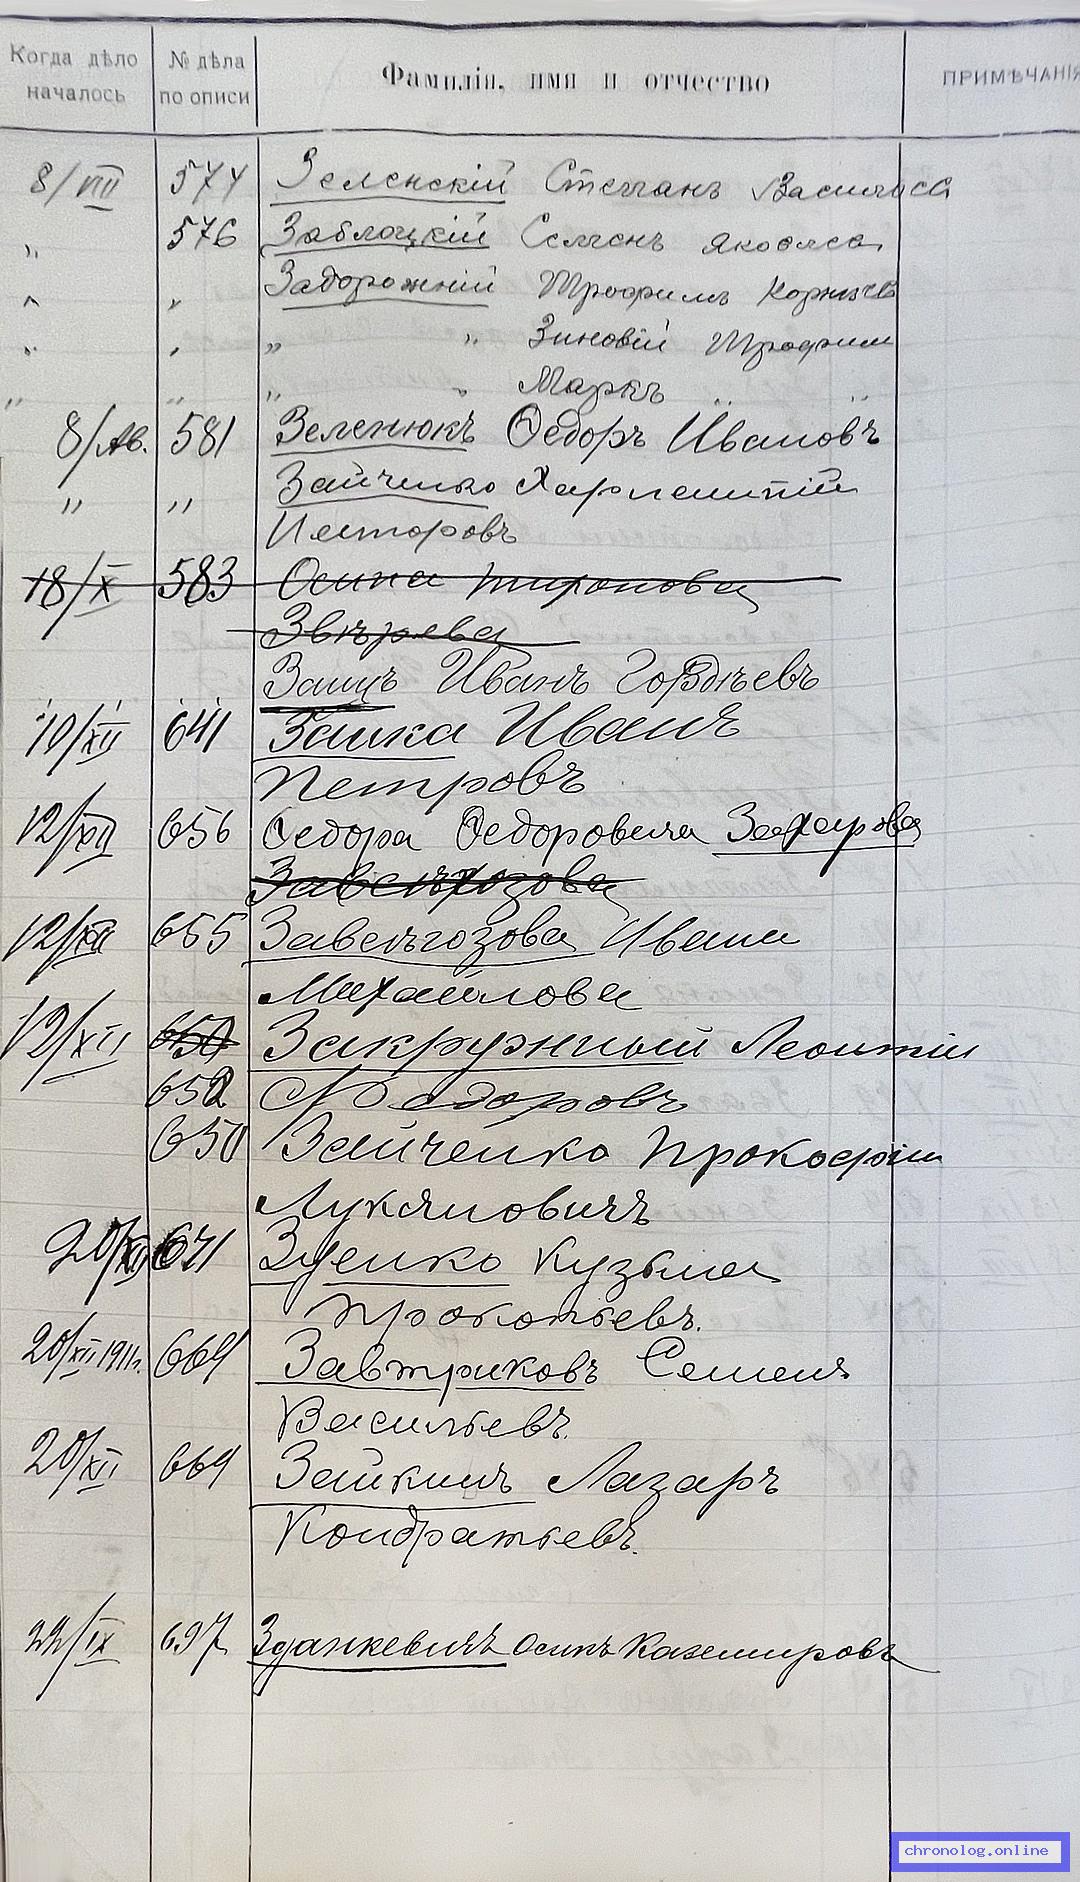 Когда дѣло началось № дѣла по описи Фамилія, имя и отчество ПРИМѢЧАНІЯ
8/VIII 574 Зеленскій Степанъ Васильева
„ 576 Заблоцкій Семенъ Яковлева
„ „ Задорожній Трофимъ Корнѣев
„ „ „ „ Зиновій Трофим
„ „ „ „ Маркъ „ „
8/Ав. 581 Зеленюкъ Ѳедоръ Ивановъ
„ „ Зайченко Харлампій
Несторовъ
18/X 583 Осипа
Звѣрева
Заяцъ Иванъ Гордѣевъ
10/XII 641 Заика Иванъ
Петровъ
12/XII 656 Ѳедора Ѳедоровича Захарова
Завельгозова
12/XII 655 Завельгозова Ивана
Михайлова
12/XII 650 Закружный Леонтій
652 Ѳедоровъ
650 Зайченко Прокофій
Лукяновичъ
20/XII 671 Зуенко Кузьма
Прокопьевъ.
20/XII 1911г. 669 Завтриковъ Семенъ
Васильевъ.
20/XII 669 Зайкинъ Лазаръ
Кондратьевъ.
22/IX 697 Зданкевичъ Осипъ Каземировъ
chronolog.online